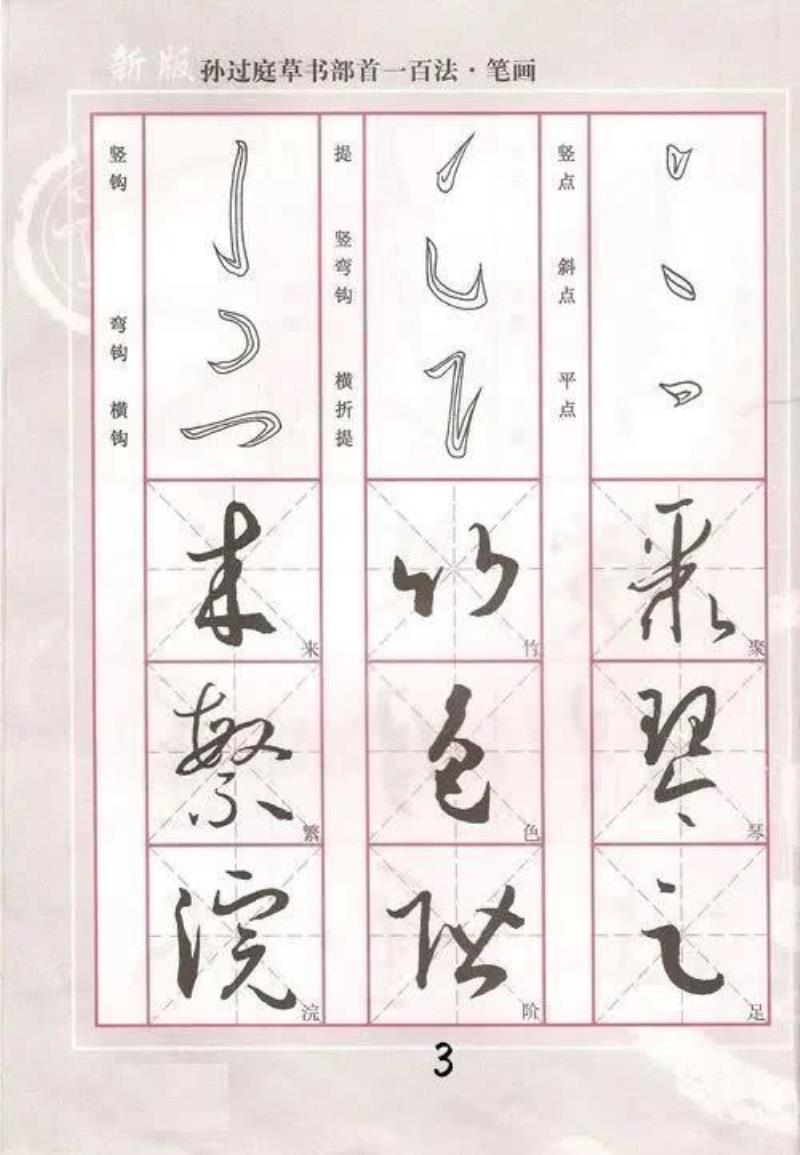 新版 孙过庭草书部首一百法·笔画
竖点 斜点 平点
聚 聚
琴 琴
足 足
提 竖弯钩 横折提
竹 竹
色 色
阶 阶
竖钩 弯钩 横钩
来 来
繁 繁
浣 浣
3